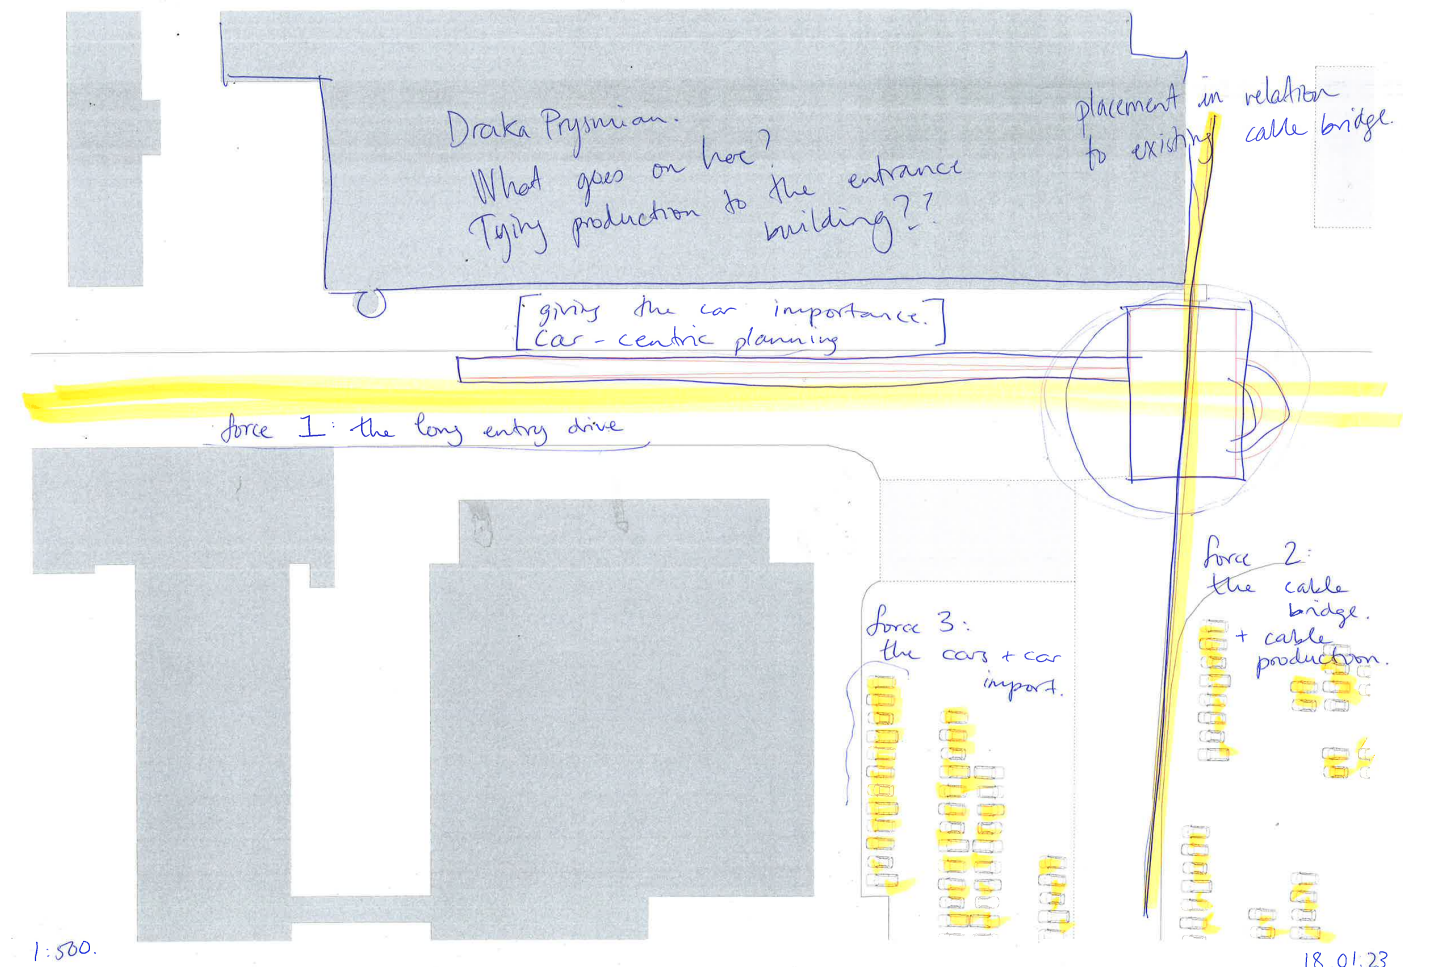 Draka Prysmian.
What goes on here?
Tying production to the entrance
building??
placement in relation
to existing cable bridge.
[giving the car importance.]
[car-centric planning]
force 1: the long entry drive
force 2:
the cable
bridge.
+ cable
production.
force 3:
the cars + car
import.
1:500.
18 01:23